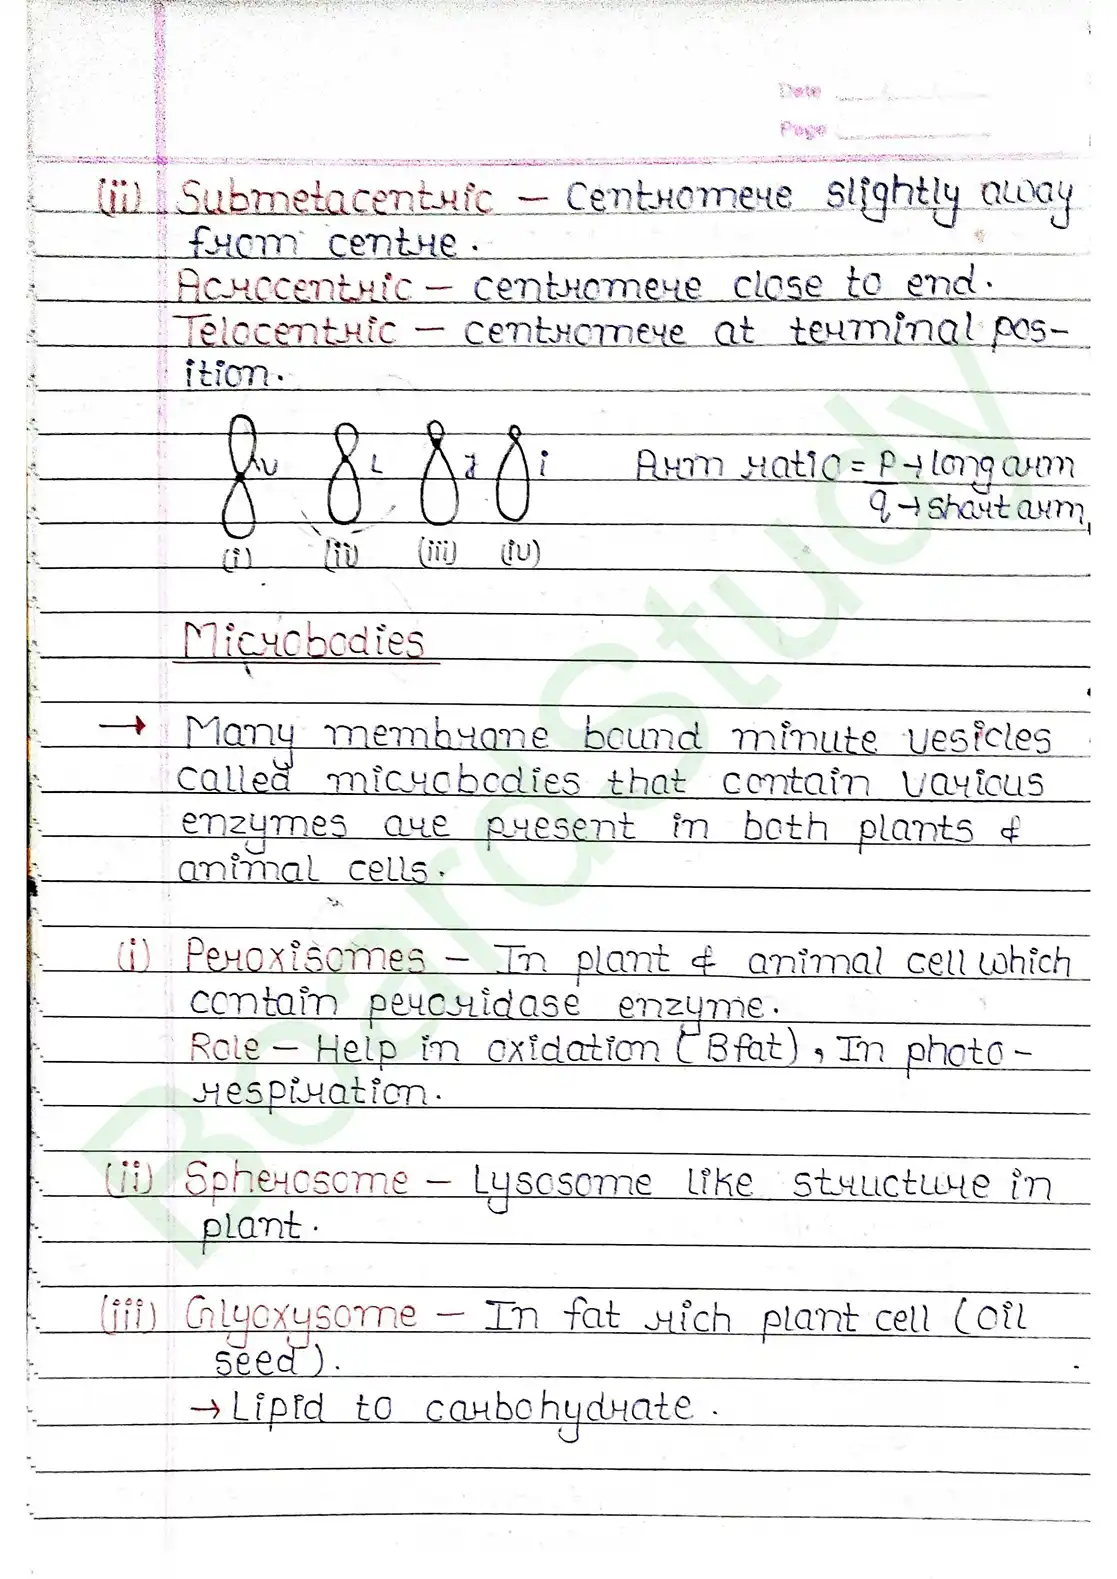 Date
Page
(ii) Submetacentric – Centromere slightly away
from centre.
Acrocentric – centromere close to end.
Telocentric – centromere at terminal pos-
ition.
V L J i Arm ratio = P → long arm
q → short arm
(i) (ii) (iii) (iv)
Microbodies
→ Many membrane bound minute vesicles
called microbodies that contain various
enzymes are present in both plants &
animal cells.
(i) Peroxisomes – In plant & animal cell which
contain peroxidase enzyme.
Role – Help in oxidation (Bfat), In photo-
respiration.
(ii) Spherosome – Lysosome like structure in
plant.
(iii) Glyoxysome – In fat rich plant cell (oil
seed).
→ Lipid to carbohydrate.
BoardStudy